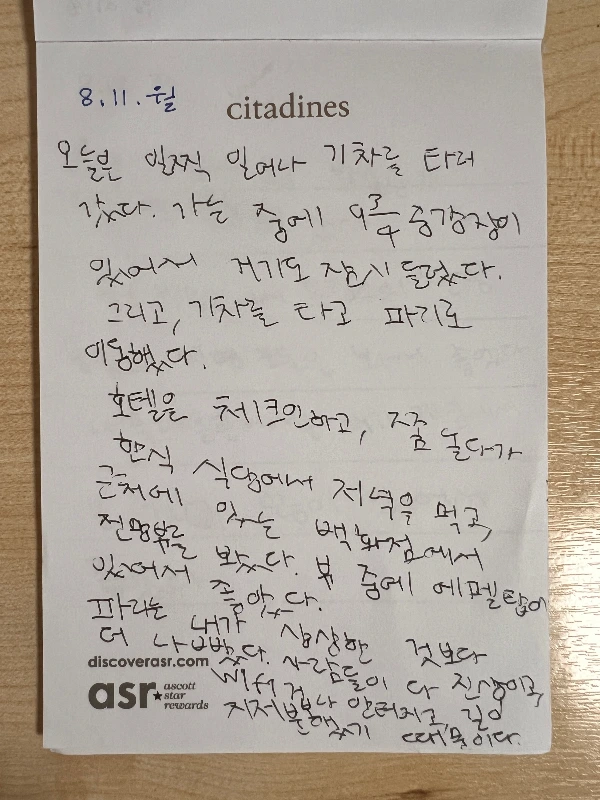 8.11.월
citadines
오늘은 일찍 일어나 기차를 타러
갔다. 가는 중에 9 3/4 승강장이
있어서 거기도 잠시 들렀다.
그리고, 기차를 타고 파리로
이동했다.
호텔을 체크인하고, 좀 놀다가
한식 식당에서 저녁을 먹고,
근처에 있는 백화점에서
전망뷰를 봤다. 뷰 중에 에펠탑이
있어서 좋았다.
파리는 내가 상상한 것보다
더 나빴다. 사람들이 다 진상이고,
discoverasr.com
wifi 거 나 안터지고, 길이
지저분했기 때문이다.
asr ascott
star
rewards